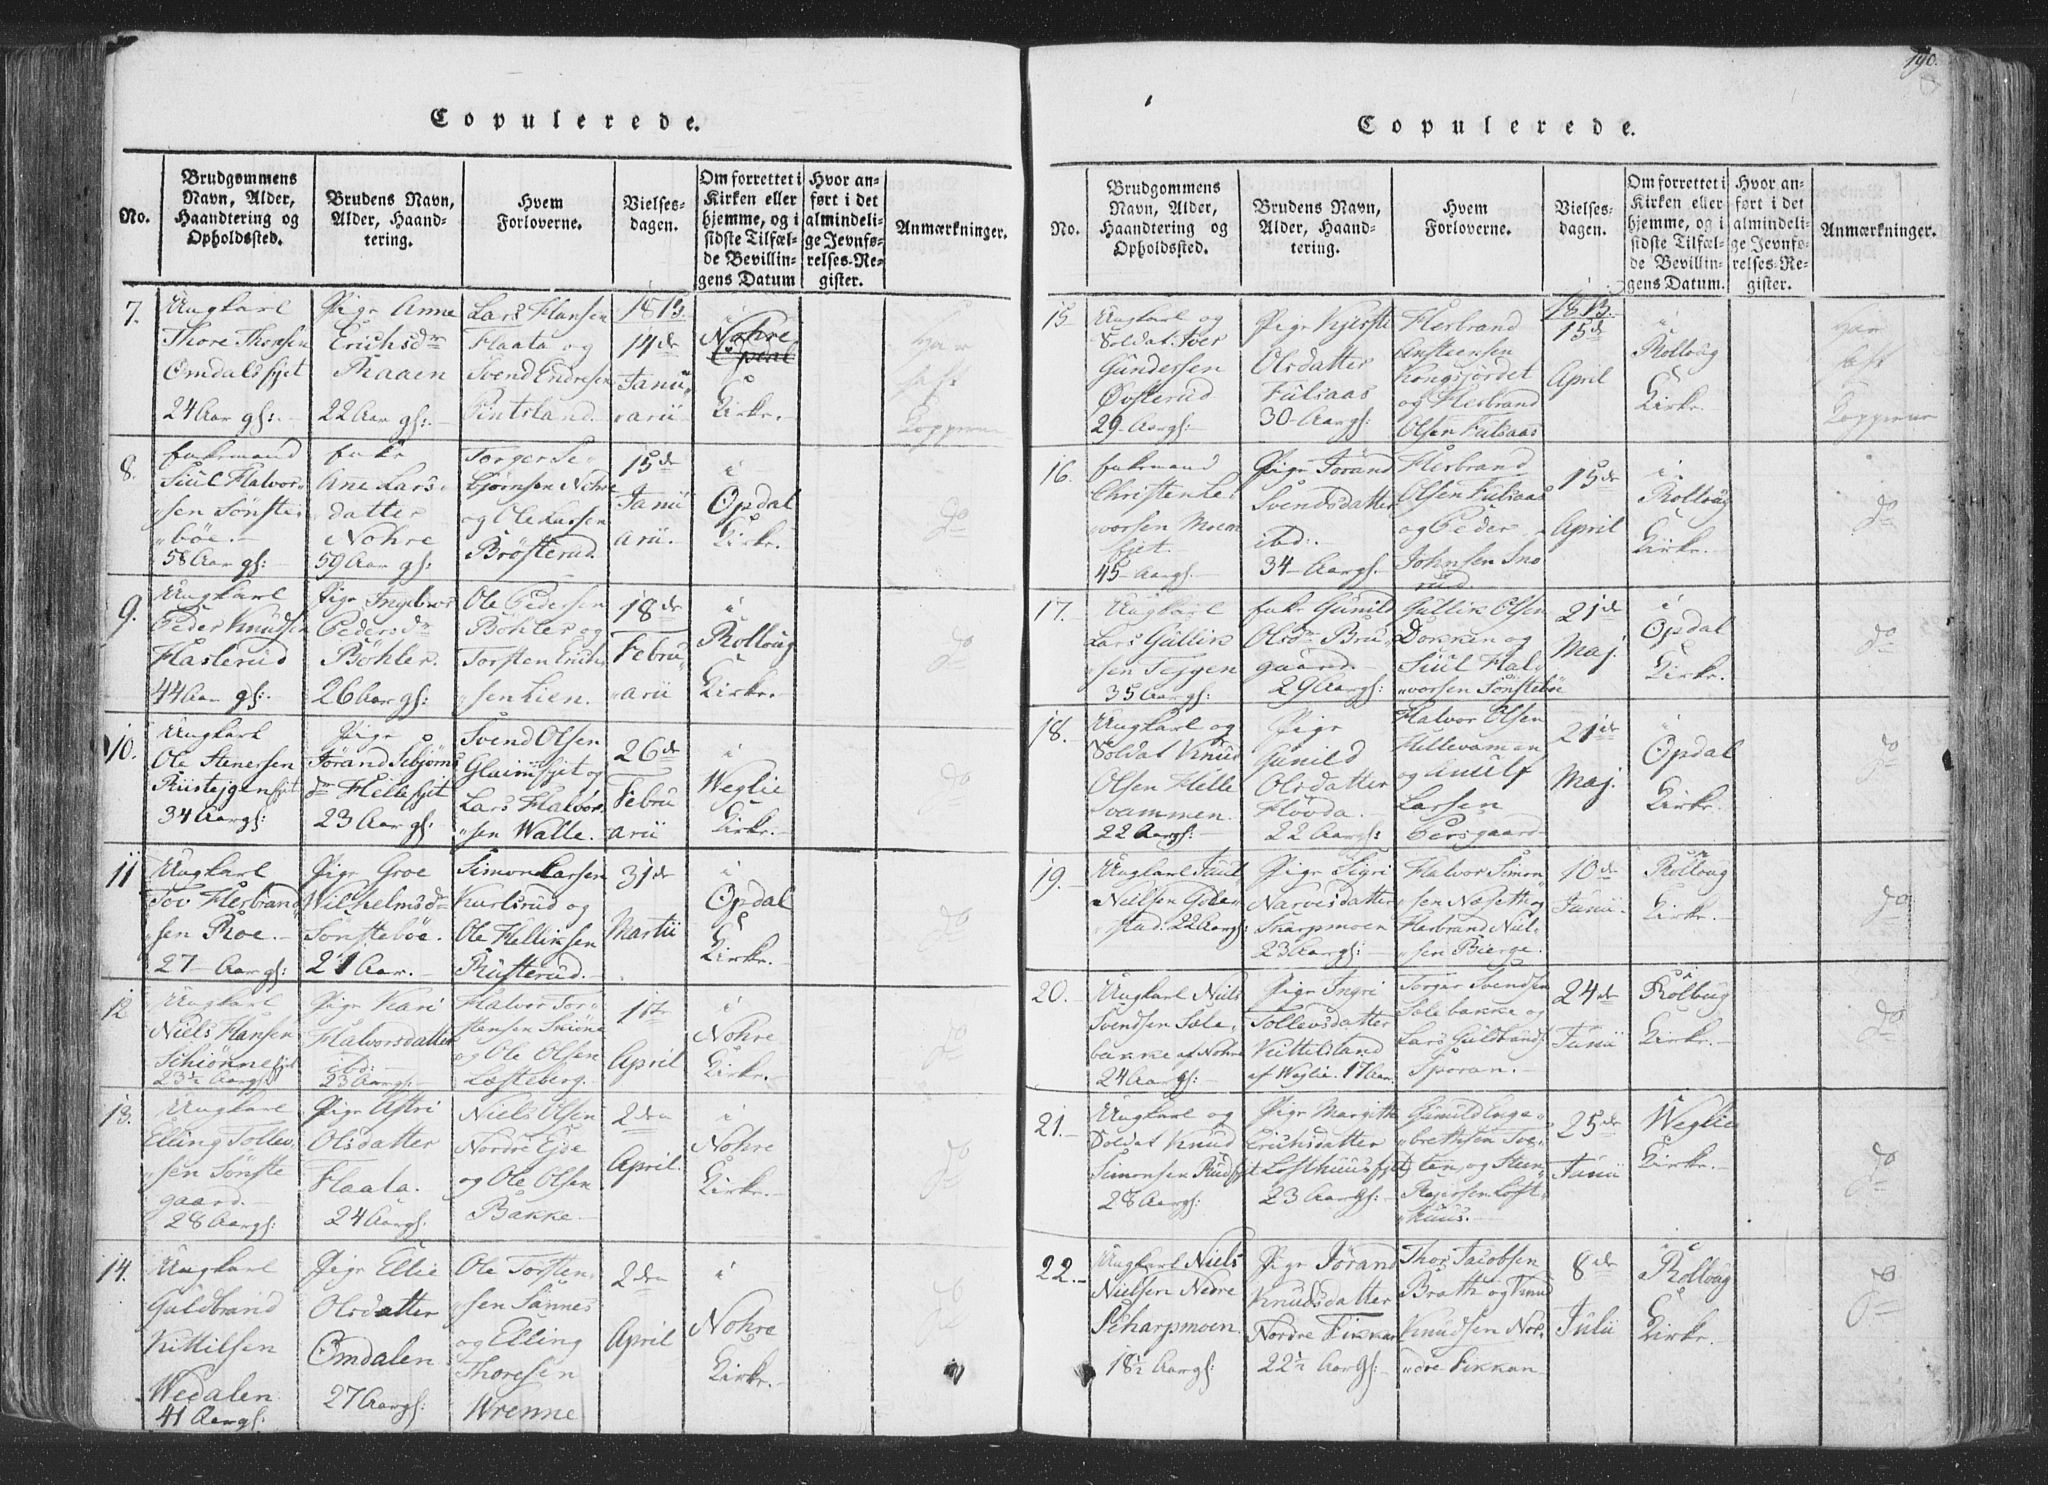 190.
Copulerede.
No.
Brudgommens
Navn, Alder,
Haandtering og
Opholdssted.
Brudens Navn,
Alder, Haand-
tering.
Hvem
Forloverne.
Vielses-
dagen.
Om forrettet i
Kirken eller
hjemme, og i
sidste Tilfæl-
de Bevillin-
gens Datum
Hvor an-
ført i det
almindeli-
ge Jevnfø-
relses-Re-
gister.
Anmærkninger.
7.
Ungkarl
Thore Thorsen
Omdalsfjet
24 Aar gl:
Pige Anne
Erichsdr
Raaen
22 Aar gl:
Lars Hansen
Flaata og
Svend Endresen
1813.
14de
Janu
arii
i
Nohre
Opdal
Kirke.
har
haft
Kopperne
8.
Enkemand
Siul Halvor
sen Sønste
bøe.
58 Aar gl:
Enke
Ane Lars
datter
Nohre
59 Aar gl:
Torger Se
bjørnsen Nohre
og Ole Larsen
Brøsterud.
15de
Janu
arii.
i
Opdal
Kirke.
do
9.
Ungkarl
Peder Knudsen
Haslerud
44 Aar gl:
Pige Ingebor
Pedersdr
Bøhler.
26 Aar gl:
Ole Pedersen
Bøhler og
Torsten Erich
sen Lien.
18de
Febru
arii
i
Rolloug
Kirke.
do
10.
Ungkarl
Ole Stenersen
34 Aar gl:
Pige
Jørand Sebjørns
dr Hellefjet
23 Aar gl:
Svend Olsen
Glaimsfjet og
Lars Halvor
sen Walle.
26de
Febru
arii
i
Weglie
Kirke.
do
11
Ungkarl
Tov Herbrand
sen Roe.
27 Aar gl:
Pige Groe
Wilhelmsdr
Sønstebøe.
21 Aar.
Simon Larsen
Kurlsrud og
Ole Helliksen
Rusterud.
31de
Martii
i
Opdal
Kirke.
do
12
Ungkarl
Niels Hansen
Schiønnefjet
23½ Aar gl:
Pige Kari
Halvorsdatter
ibd:
23 Aar gl:
Halvor Tor
stensen Skiøne
og Ole Olsen
Løsteberg.
1ste
April
i
Nohre
Kirke.
do
13.
Ungkarl
Elling Tollev
sen Sønste
gaard.
28 Aar gl:
Pige Astri
Olsdatter
Flaata.
24 Aar gl:
Niels Olsen
Nordre Ejde
og Ole Olsen
Bakke
2den
April.
i
Nohre
Kirke.
do
14.
Ungkarl
Guldbrand
Kittilsen
Wedalen
41 Aar gl:
Pige Ellie
Olsdatter
Omdalen
27 Aar gl:
Ole Torsten
sen Sannes
og Elling
Thoresen
Wrenne
2den
April
i
Nohre
Kirke.
do
Copulerede.
No.
Brudgommens
Navn, Alder,
Haandtering og
Opholdssted.
Brudens Navn,
Alder, Haand-
tering.
Hvem
Forloverne.
Vielses-
dagen.
Om forrettet i
Kirken eller
hjemme, og i
sidste Tilfæl-
de Bevillin-
gens Datum.
Hvor an-
ført i det
almindeli-
ge Jevnfø-
relses-Re-
gister.
Anmærkninger.
15
Ungkarl og
Soldat Iver
Gundersen
Øvsterud
29 Aar gl:
Pige Kjersti
Olsdatter
Fulsaas
30 Aar gl:
Herbrand
Ansteensen
Kongsjordet
og Herbrand
Olsen Fulsaas
1813.
15de
April
i
Rolloug
Kirke.
har
haft
Kopperne
16.
Enkemand
Christen Le
vorsen Moen
fjet.
45 Aar gl.
Pige Jørand
Svendsdatter
ibd:
34 Aar gl.
Herbrand
Olsen Fulsaas
og Peder
Johnsen Sno
rud.
15de
April
i
Rolloug
Kirke.
do
17.
Ungkarl
Lars Gullik
sen Teigen
35 Aar gl:
Enke Gunild
Olsdr Bru
gaard.
29 Aar gl:
Gullik Olsen
Dokken og
Siul Hal
vorsen Sønstebø
21de
Maj.
i
Opdal
Kirke.
do
18.
Ungkarl og
Soldat Knud
Olsen Helle
vammen.
22 Aar gl:
Pige
Gunild
Olsdatter
Høvda.
22 Aar gl:
Halvor Olsen
Hellevamen
og Anulf
Larsen
Persgaard
21de
Maj.
i
Opdal
Kirke.
do
19.
Ungkarl Juul
Nielsen Gole
stad. 22 Aar gl:
Pige Sigri
Narvesdatter
Skarpmoen
23 Aar gl:
Halvor Simon
sen Næseth og
Herbrand Niel
sen Bierge.
10de
Junii
Rolloug
Kirke.
do
20.
Ungkarl Niels
Svendsen Sole
bakke af Nohre
24 Aar gl:
Pige Ingri
Tollevsdatter
Kittilsland
af Weglie. 17 Aar.
Torger Svendsen
Solebakke og
Lars Guldbrands
Sporan.
24de
Junii
i
Rolloug
Kirke.
do
21.
Ungkarl og
Soldat Knud
Simonsen Rudfjet
28 Aar gl:
Pige Margith
Erichsdatter
Lofthuusfjet
23 Aar gl:
Gunuld Enge
brethsen Tve
ten, og Steen
Reiersen Loft
huus.
25de
Junii
i
Weglie
Kirke.
do
22.
Ungkarl Niels
Nielsen Nedre
Scharpmoen
18½ Aar gl:
Pige Jørand
Knudsdatter
Nordre Fikkan
22½ Aar gl:
Thor Jacobsen
Brath og Knud
Knudsen Nor
dre Fikkan
8de
Julii
i
Rolloug
Kirke.
do